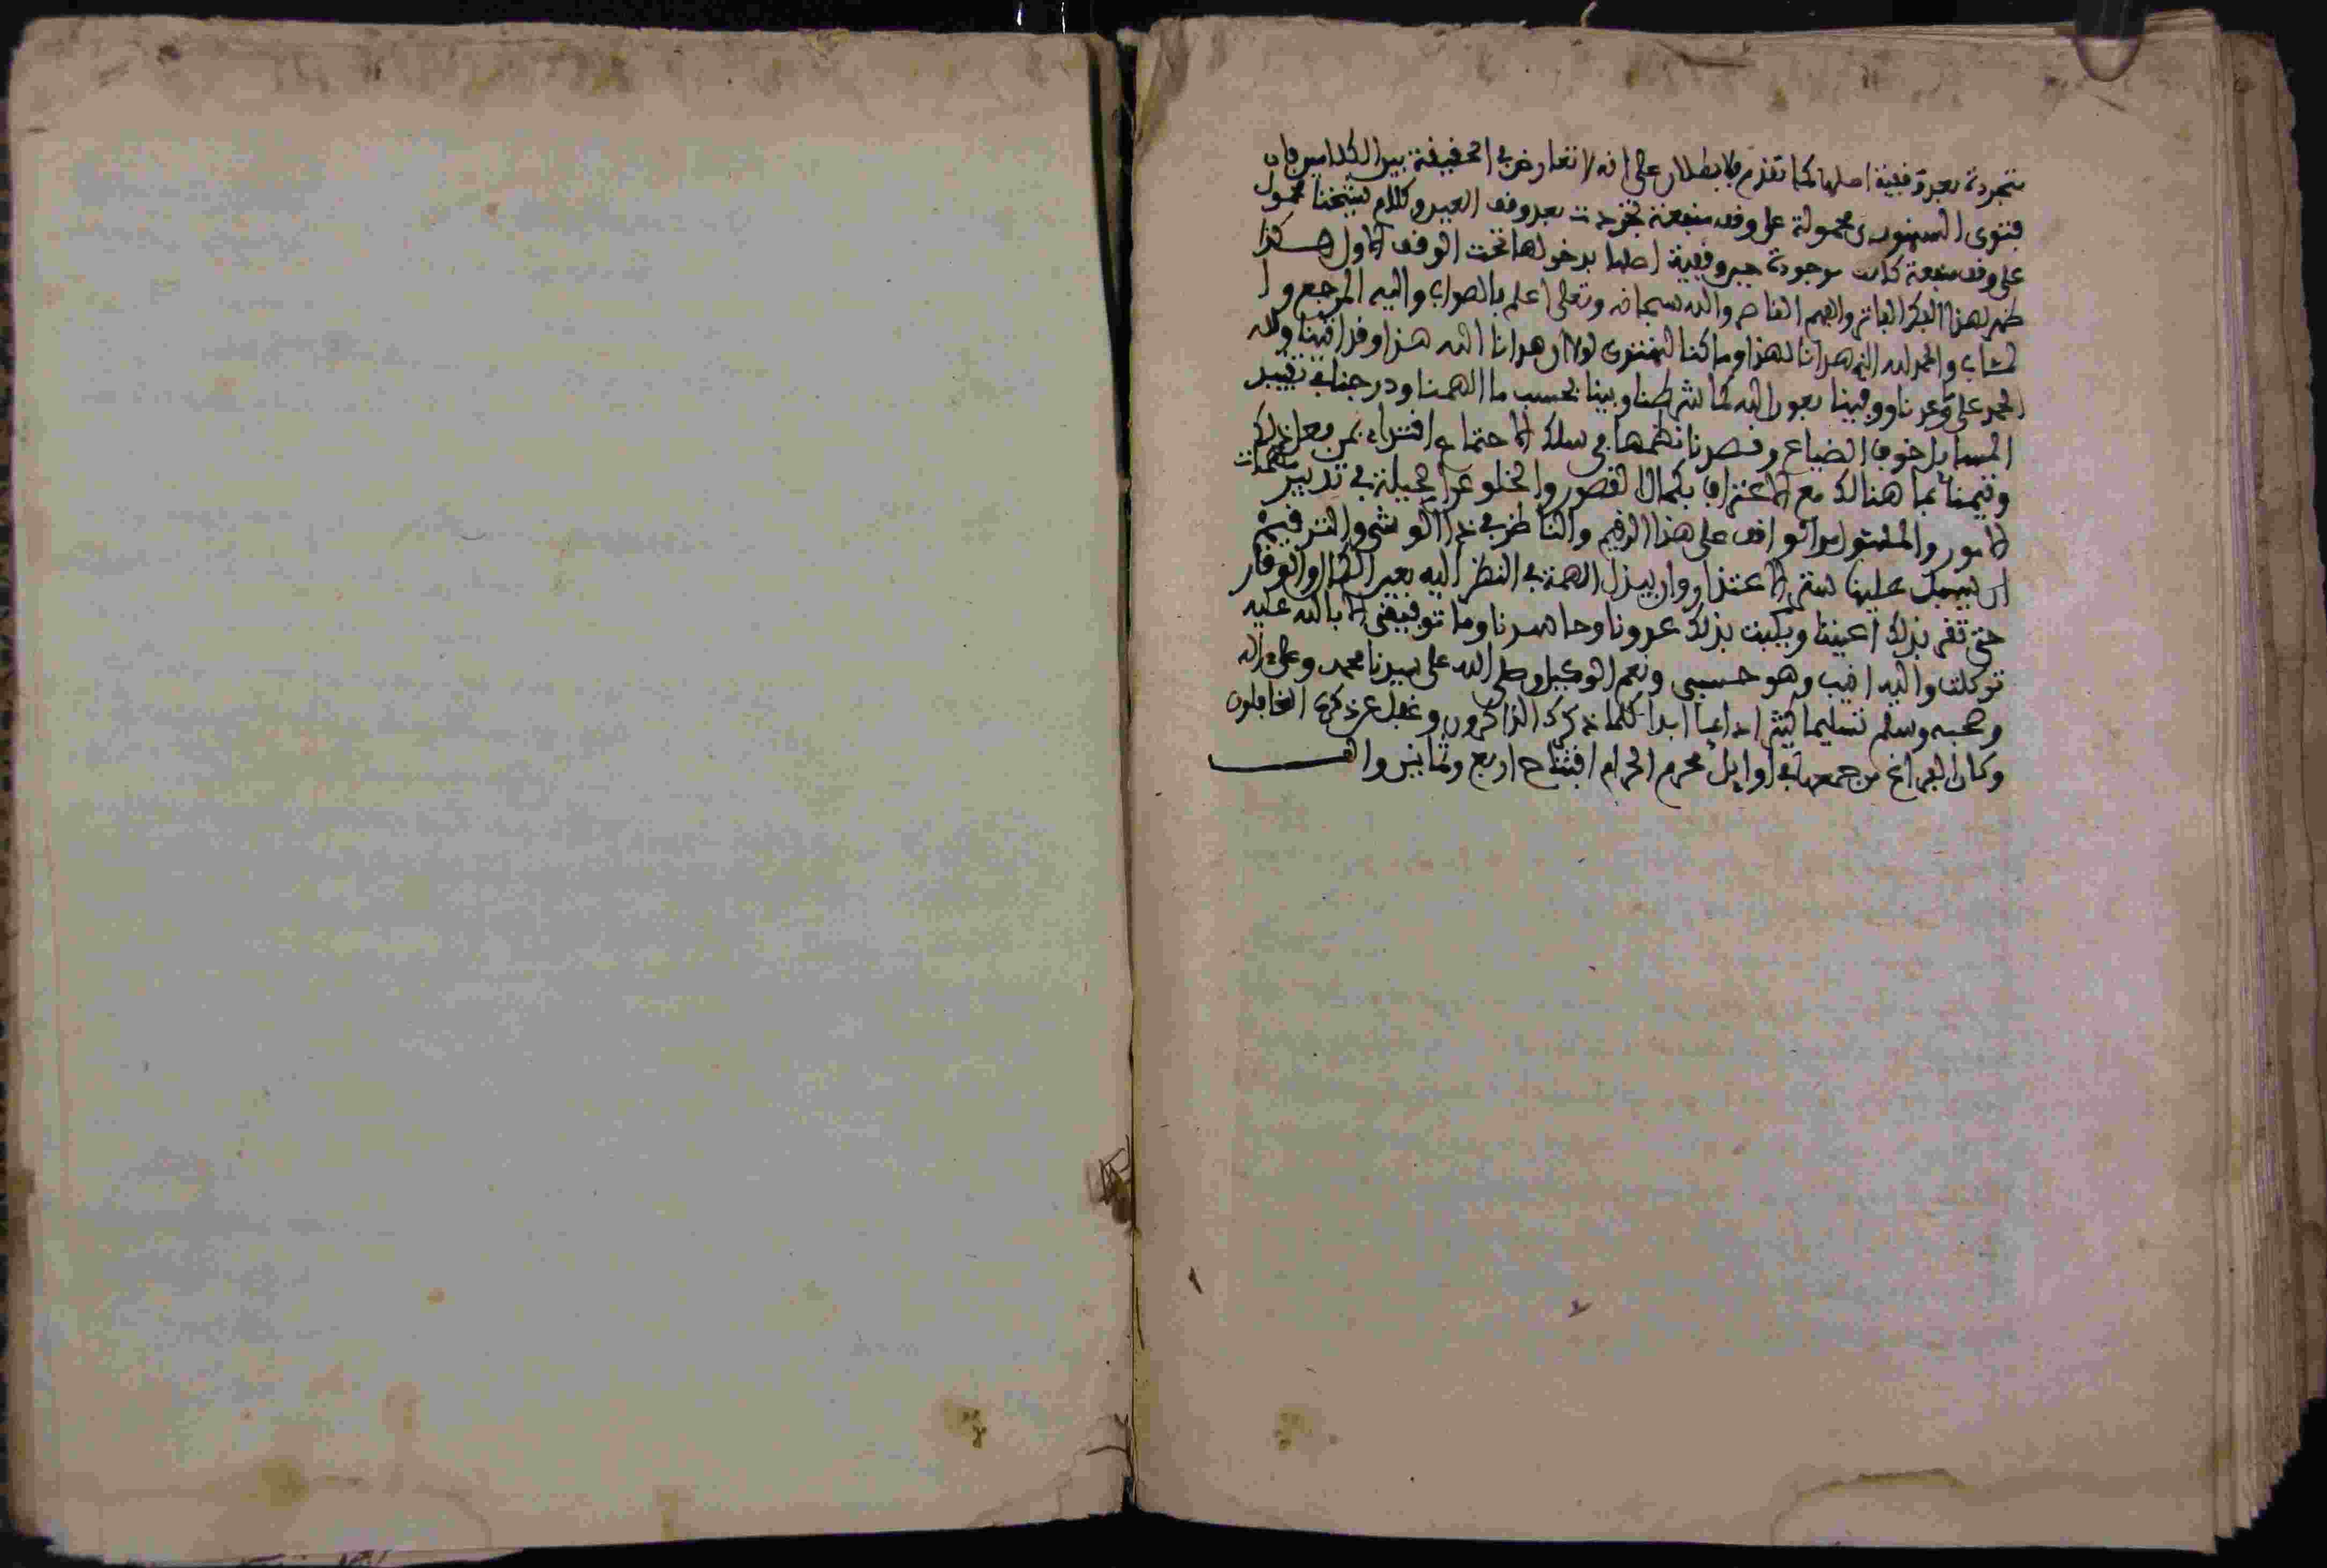 متجردة بعد وقفية اصلها كما تقدم فلا بطلان على انه لا تعارض في الحقيقة بين الكلامين فان
فتوى السنهوري محمولة على وقف منفعة تجددت بعد وقف العين وكلام شيخنا محمول
على وقف منفعة كانت موجودة حين وقفية اصلها بدخولها تحت الوقف الاول هكذا
ظهر لهذا الفكر الفاتر والفهم القاصر والله سبحانه وتعالى اعلم بالصواب واليه المرجع وا
لمئاب والحمد لله الذي هدانا لهذا وما كنا لنهتدي لولا ان هدانا الله هذا وقد اتينا ولله
الحمد على وعدنا ووفينا بعون الله كما شرطنا وبينا بحسب ما الهمنا ودرجنا في تقييد
المسايل خوف الضياع وقصدنا نظمها في سلك الاجتماع اقتداء بمن فعل ذلك
وتيمنا بما هنالك مع الاعتراف بكمال القصور والخلو عن الحيلة في تدبير مهمات
الامور والملتمس من الواقف على هذا الرقيم والناظر في هذا الوشي والترقيم
ان يسبل علينا ستر الاعتذار وان يبذل الهمة في النظر اليه بعين الكمال والوقار
حتى تقر بذلك اعيننا ويكبت بذلك عدونا وحاسدنا وما توفيقي الا بالله عليه
توكلت واليه انيب وهو حسبي ونعم الوكيل وصلى الله على سيدنا محمد وعلى اله
وصحبه وسلم تسليما كثيرا دايما ابدا كلما ذكرك الذاكرون وغفل عن ذكره الغافلون
وكان الفراغ من جمعها في اوايل محرم الحرام افتتاح اربع وثمانين والف